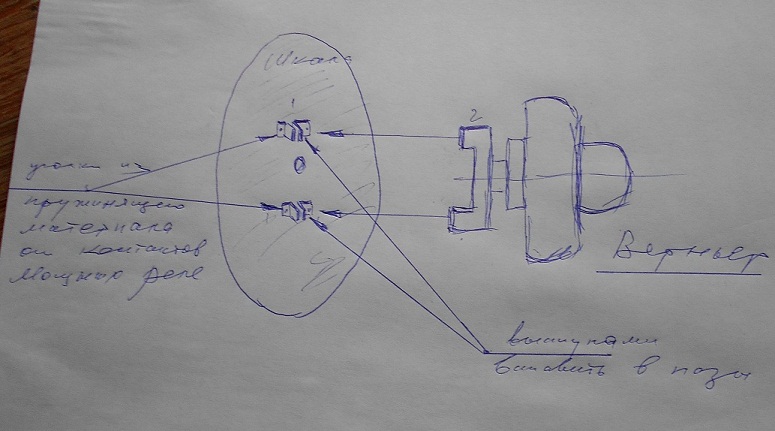 Шкала
1
2
уголки из
пружинящего
материала
от контактов
мощного реле
Верньер
выступами
вставить в пазы